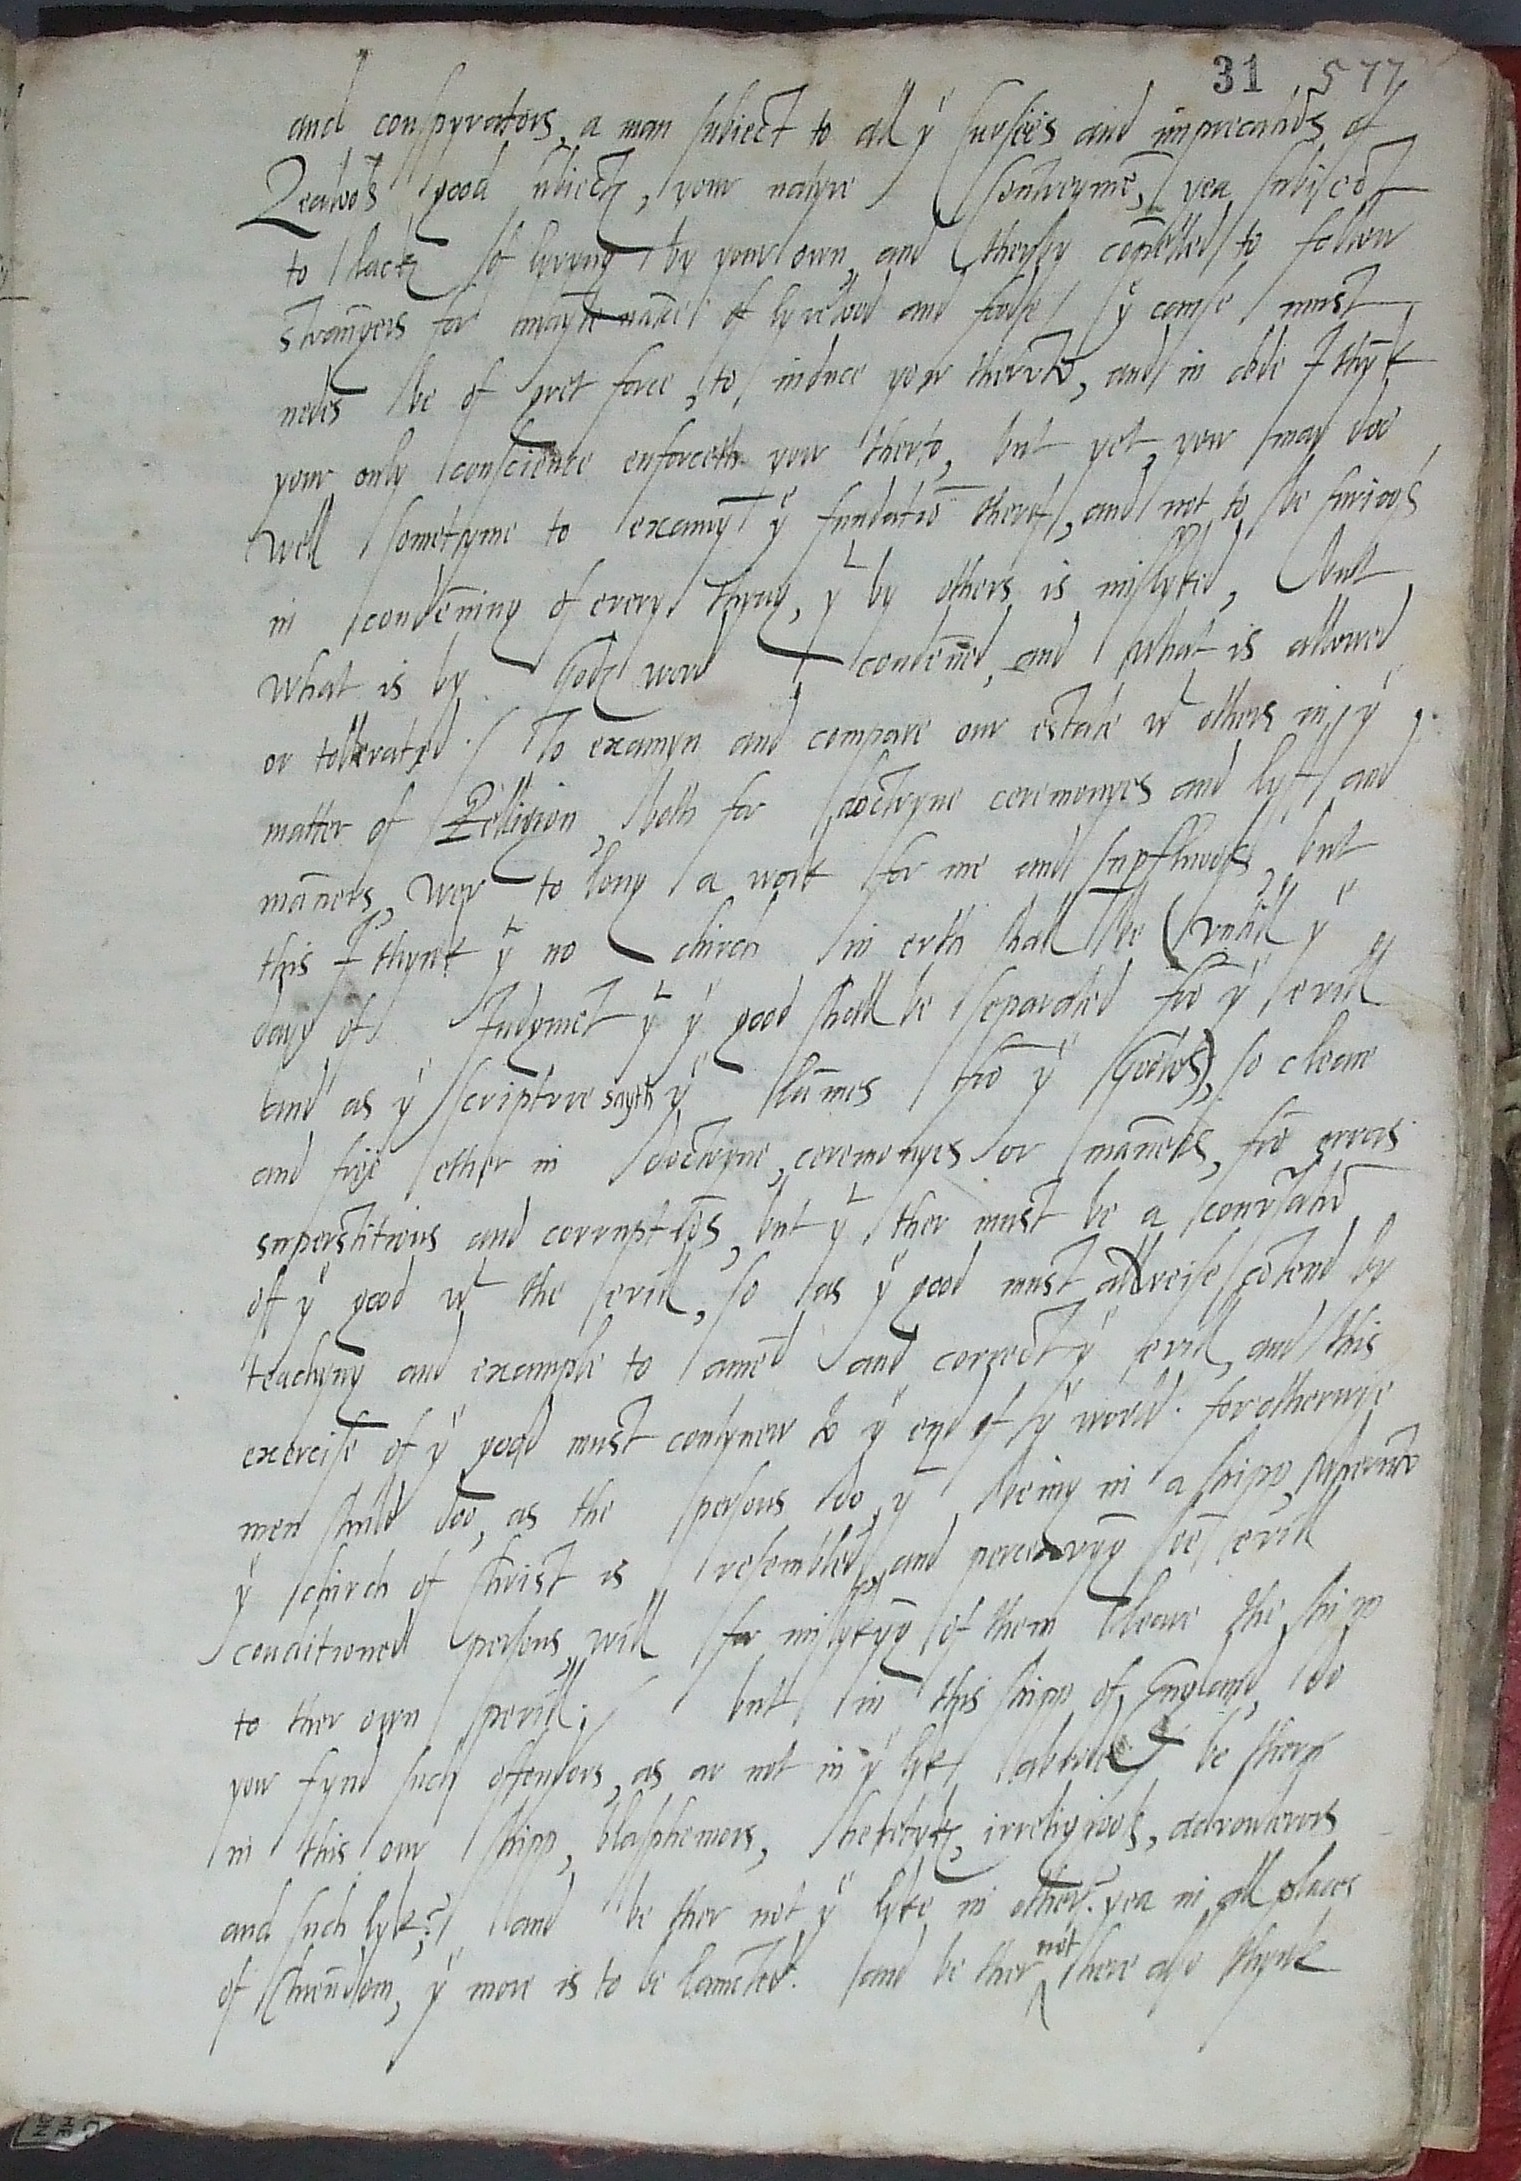 31 577
and conspyrators, a man subiect to all yͤ cursees and imprecatiōs of
Zealoos good subiectꝭ, your natyve Contreymē, yea subiect
to lack of lyvyng by your own, and therby cōpelled to folow
strangers for mayntenāce of lyvelod and foode, yͤ cause must
nedes be of gret force, to induce yow therto, and in dede I thȳk
your only conscience enforceth yow therto, but yet yow may doo
well sometyme to examȳ yͤ fundatiō therof, and not to be furioos
in condēning of every thyng, yͭ by others is mislyked, but
what is by Godꝭ word condēned, and what is allowed
or tollerated. / To examyn and compare our estate wͭ others in yͤ
matter of Relligion, both for doctryne ceremonyes and lyff and
māners, wer to long a work for me and superfluoos, but
this I thynk yͭ no chirch in erth shall be (untill yͤ
day of Iudgmēt yͭ yͤ good shall be separated frō yͤ evill
and as yͤ scripture sayth yͤ lāmes frō yͤ Gootes), so cleane
and frije ether in doctryne, ceremonyes or māners, frō errors
superstitions and corruptiōs, but yͭ ther must be a
of yͤ good wͭ the evill, so as yͤ good must allweise cōtend by
teachyng and example to amēd and correct yͤ evill, and this
exercise of yͤ good must contynew to yͤ end of yͤ world. for otherwise
men shuld doo, as the persons do, yͭ being in a shipp, wherunto
yͤ chirch of Christ is resembled, and perceavyng sōe evill
conditioned persons, will for mislykȳg of them leave the shipp
to ther own perill; / but in this shipp of England, do
yow fynd such offendors, as ar not in yͤ lyk abrode? be ther
in this our shipp, blasphemors, heretykꝭ, irreligioos, advoutrors
and such lyk? / and be ther not yͤ lyke in other? yea in all places
of Christēdom, yͤ more is to be lamēted. and be ther not here also thynk